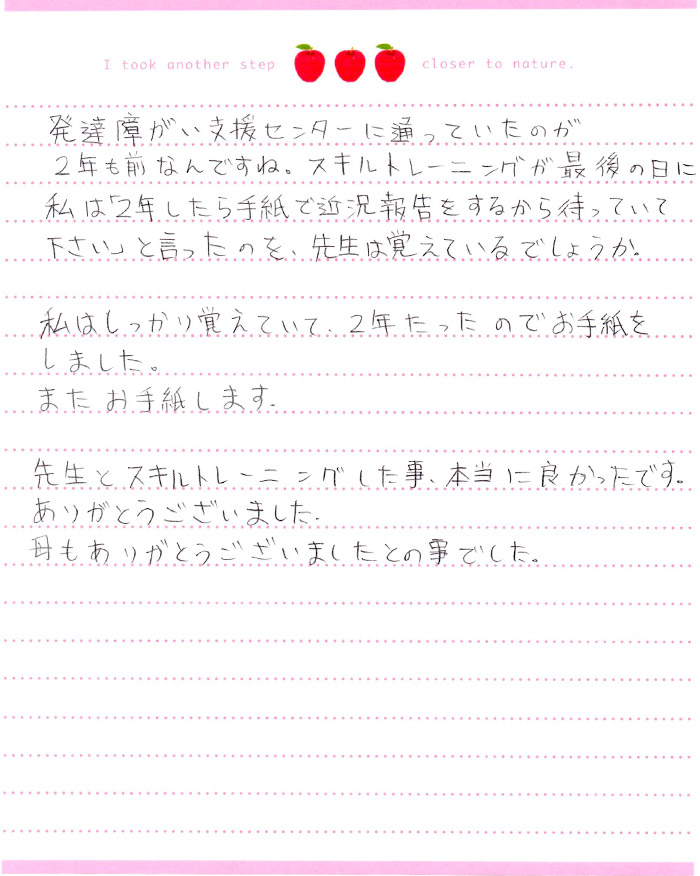 I took another step closer to nature.
発達障がい支援センターに通っていたのが
2年も前なんですね。スキルトレーニングが最後の日に
私は「2年したら手紙で近況報告をするから待っていて
下さい」と言ったのを、先生は覚えているでしょうか。
私はしっかり覚えていて、2年たったのでお手紙を
しました。
またお手紙します。
先生とスキルトレーニングした事、本当に良かったです。
ありがとうございました。
母もありがとうございましたとの事でした。